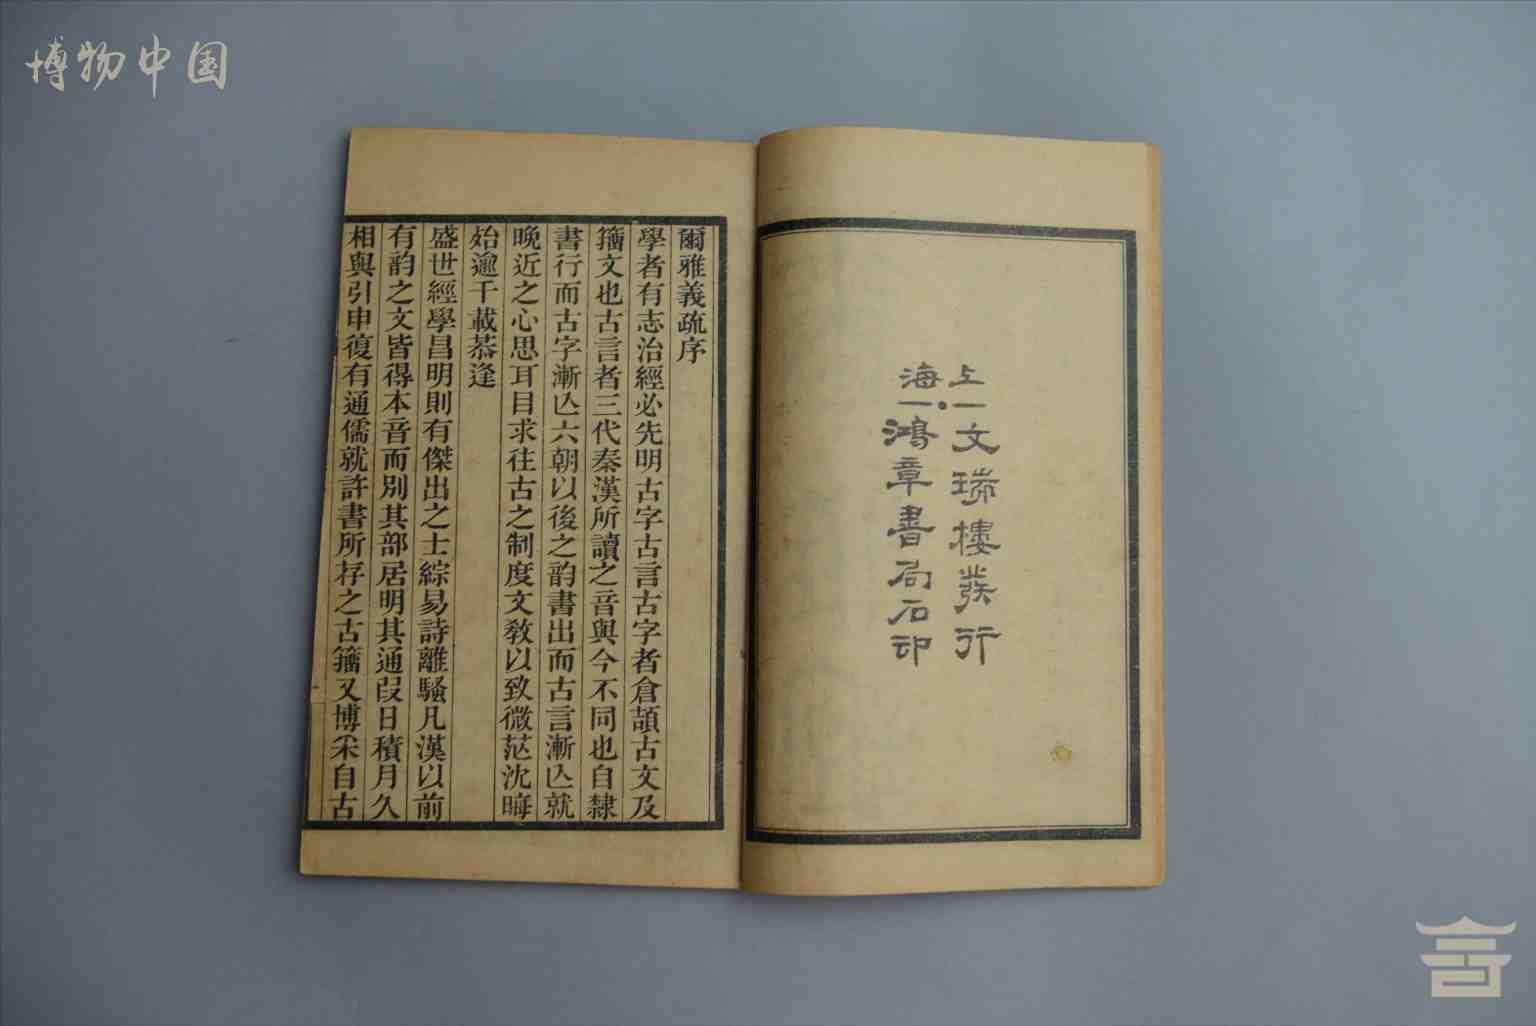 博物中国
上海
文瑞樓發行
鴻章書局石印
爾雅義疏序
學者有志治經必先明古字古言古字者倉頡古文及
籀文也古言者三代秦漢所讀之音與今不同也自隸
書行而古字漸亾六朝以後之韵書出而古言漸亾就
晚近之心思耳目求往古之制度文敎以致微茫沈晦
始逾千載恭逢
盛世經學昌明則有傑出之士綜易詩離騷凡漢以前
有韵之文皆得本音而別其部居明其通叚日積月久
相與引申復有通儒就許書所存之古籀又博采自古